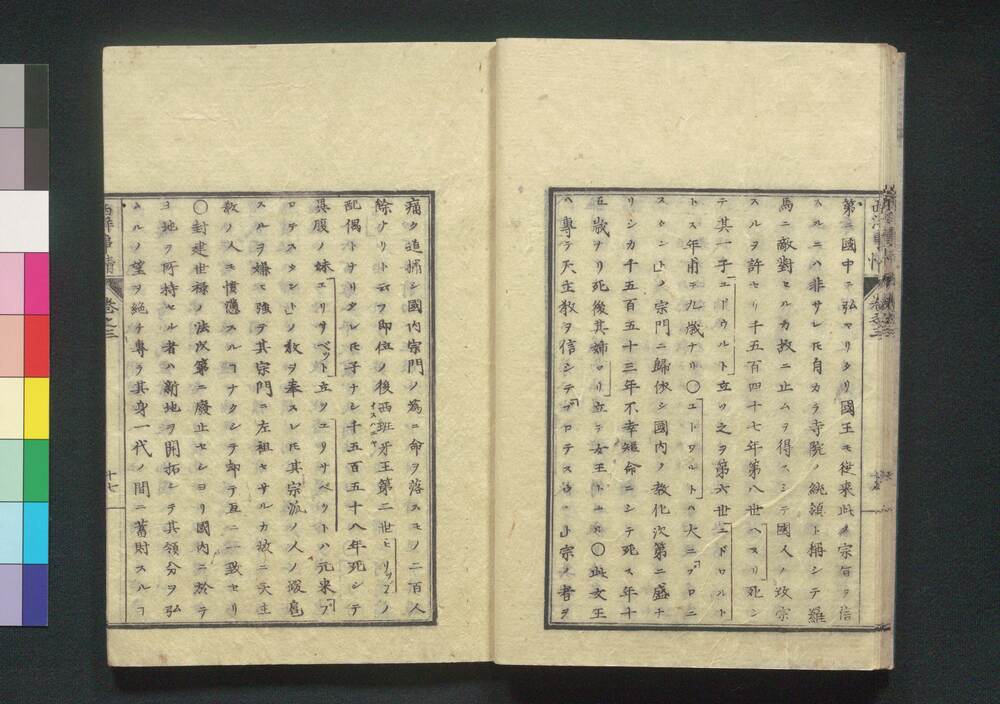 第ニ國中ニ弘マリタリ國王モ從來此ノ宗旨ヲ信
スルニハ非サレ𪜈自カラ寺院ノ統領ト稱シテ羅
馬ニ敵對セルカ故ニ止ムヲ得スシテ國人ノ改宗
スルヲ許セリ千五百四十七年第八世ヘヌリ死シ
テ其一子エードウルト立ツ之ヲ第六世エドワルト
トス年甫テ九歳ナリ〇エトワルトハ大ニ「プロニ
スタント」ノ宗門ニ歸依シ國内ノ教化次第ニ盛ナ
リシカ千五百五十三年不幸短命ニシテ死ス年十
五歳ナリ死後其姉マリ立テ女王トナル〇此女王
ハ專ラ天主教ヲ信シテ「プロテスタント」宗ノ者ヲ
痛ク追捕シ國内宗門ノ爲ニ命ヲ落スモノ二百人
餘ナリト云フ即位ノ後西班牙王第二世ヒリップノ
イスパニヤ
配偶トナリタレ𪜈子ナシ千五百五十八年死シテ
異腹ノ妹エリサベット立ツエリサベットハ元來「プ
ロテスタント」ノ教ヲ奉スレ𪜈其宗派ノ人ノ跋扈
スルヲ嫌ヒ強テ其宗門ニ左袒セサルカ故ニ天主
教ノ人モ憤懣スルヿナクシテ却テ互ニ一致セリ
〇封建世祿ノ法次第ニ廢止セシヨリ國内ニ於テ
ヨ地ヲ所持セル者ハ新地ヲ開拓シテ其領分ヲ弘
ムルノ望ヲ絶チ專ラ其身一代ノ間ニ蓄財スルヿ
西洋事情
卷之三
十七